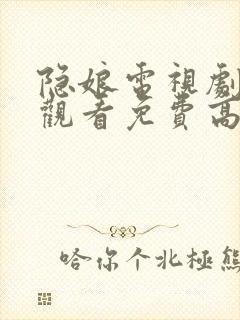 隐娘電視劇
觀看免費高
哈你个北極熊